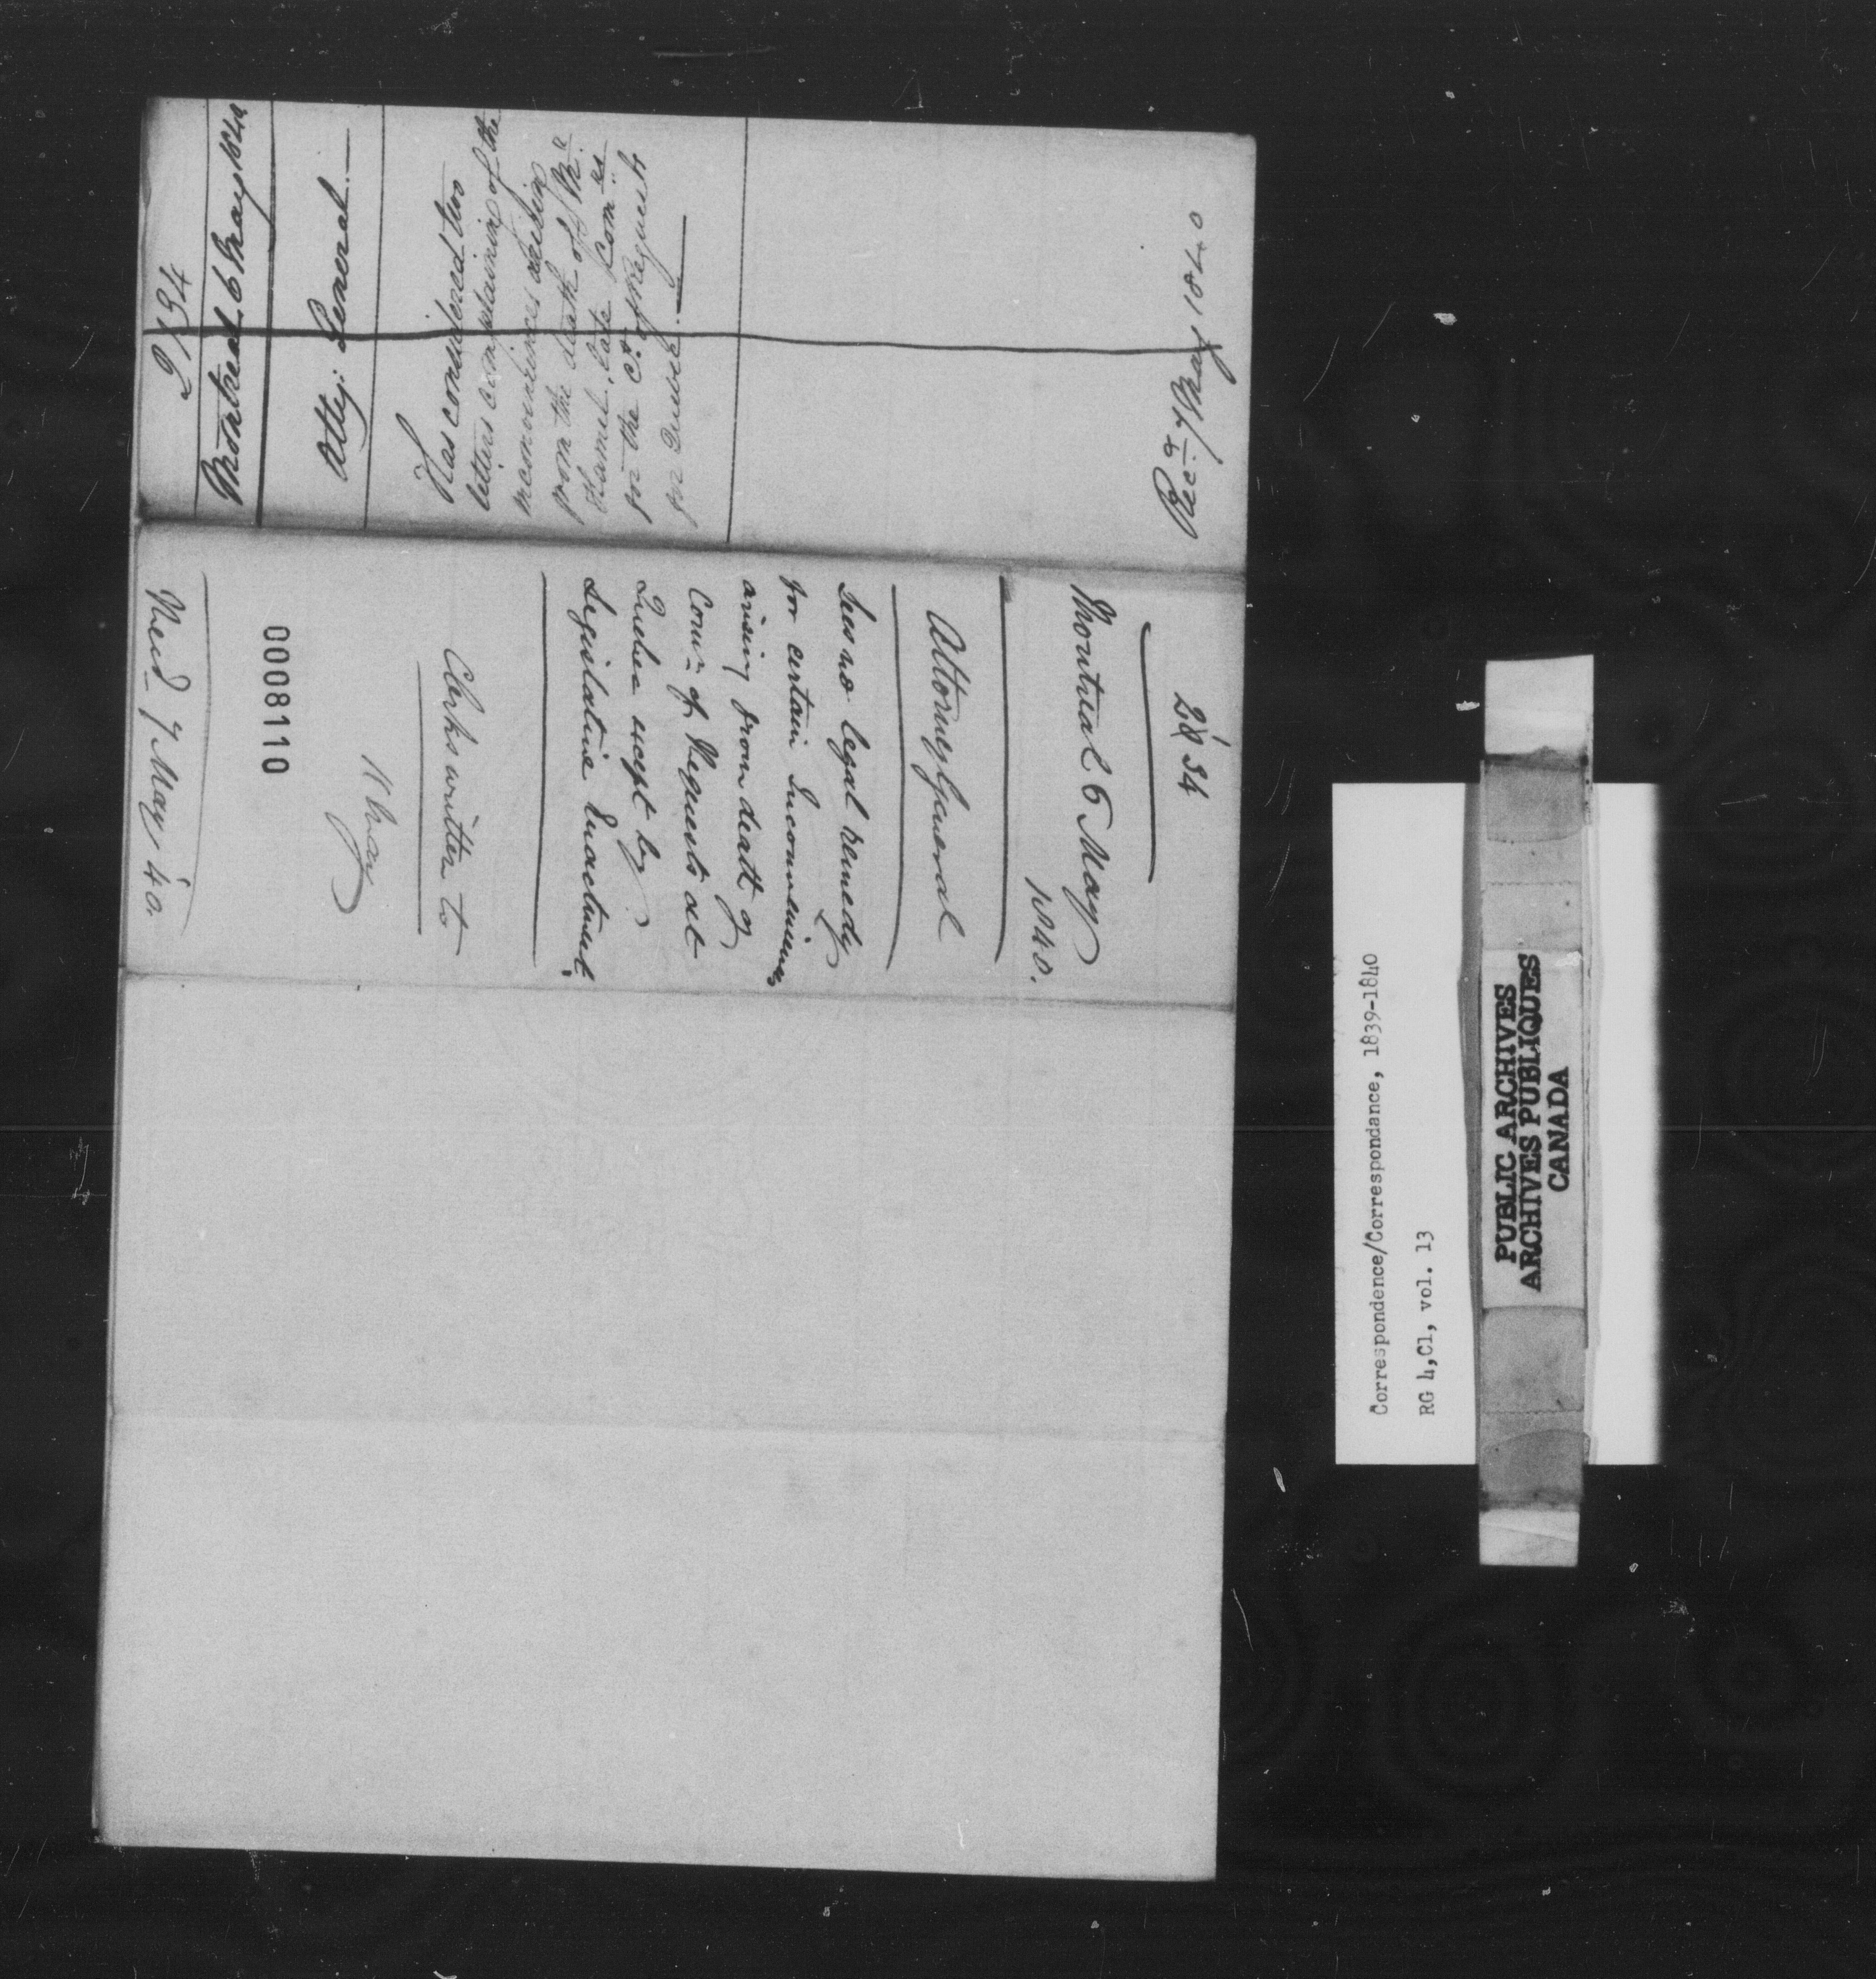 2134
Montreal 6 May 1840
Atty: General.—
Has considered two
letters complaining of the
inconveniences arising
from the death of Mr.
Hamel, late Comrs
in the Ct. of Requests
for Quebec.
Recd 7 May 1840
2134
Montreal 6 May
1840.
Attorney General
Sees no legal remedy
for certain Inconveniences
arising from death of
Comr. of Requests at
Quebec except by
Legislative Enactment.
Clerks written to
11 May
0008110
Recd 7 May 40.
Correspondence/Correspondance, 1839-1840
RG 4,C1, vol. 13
PUBLIC ARCHIVES
ARCHIVES PUBLIQUES
CANADA